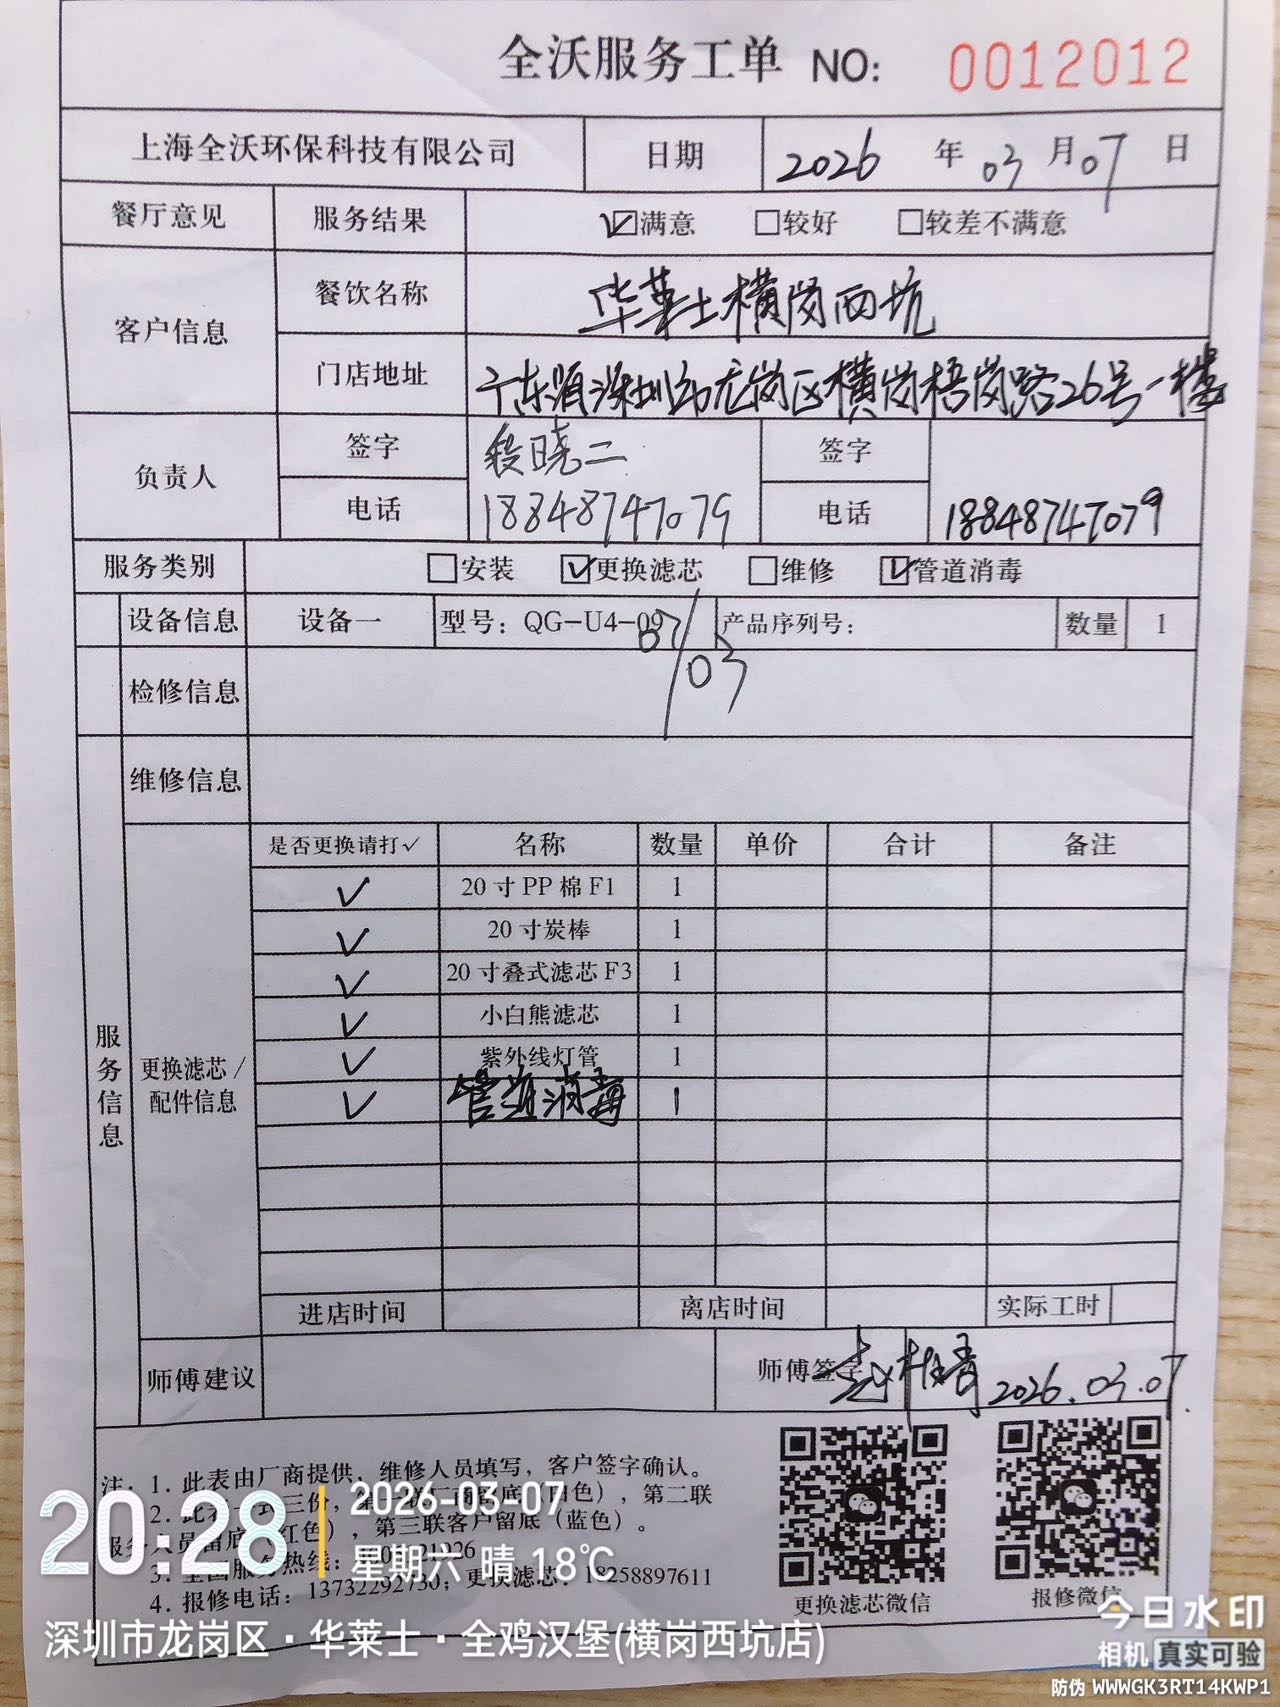 全沃服务工单 NO: 0012012
上海全沃环保科技有限公司 日期 2026 年 03 月 07 日
餐厅意见 服务结果 ☑满意 □较好 □较差不满意
客户信息 餐饮名称 华莱士横岗西坑
门店地址 广东省深圳市龙岗区横岗梧岗路26号一楼
负责人 签字 段晓二 签字
电话 18848747079 电话 18848747079
服务类别 □安装 ☑更换滤芯 □维修 ☑管道消毒
设备信息 设备一 型号：QG-U4-09 产品序列号： 数量 1
07/03
检修信息
维修信息
服务信息
更换滤芯/配件信息
是否更换请打✓ 名称 数量 单价 合计 备注
✓ 20寸PP棉F1 1
✓ 20寸炭棒 1
✓ 20寸叠式滤芯F3 1
✓ 小白熊滤芯 1
✓ 紫外线灯管 1
✓ 管道消毒 1
进店时间 离店时间 实际工时
师傅建议 师傅签字 2026.03.07
注：1. 此表由厂商提供，维修人员填写，客户签字确认。
2. 三份，（白色），第二联
服务人员留底（红色），第三联客户留底（蓝色）。
3. 全国服务热线：
4. 报修电话：13732292730；更换滤芯：18258897611
更换滤芯微信 报修微信
20:28 2026-03-07
星期六 晴 18℃
深圳市龙岗区·华莱士·全鸡汉堡(横岗西坑店)
今日水印
相机 真实可验
防伪 WWWGK3RT14KWP1